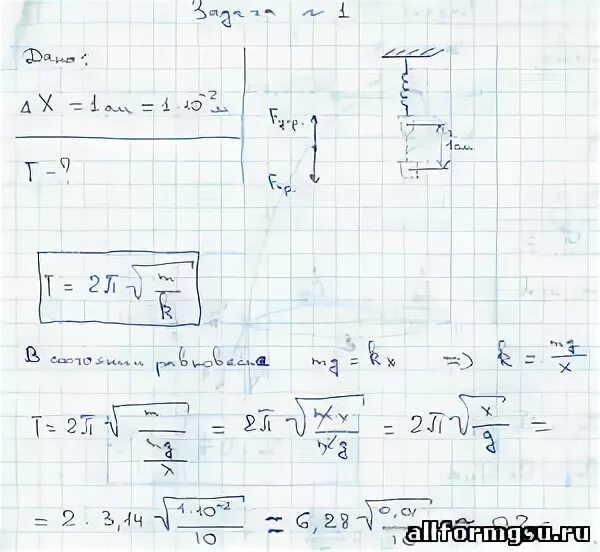 Задача № 1
Дано:
Δ X = 1 см = 1·10⁻² м
T – ?
Fупр.
Fтр.
1см.
T = 2π √(m/k)
В состоянии равновесия mg = kx => k = mg/x
T = 2π √(m/(mg/x)) = 2π √(mx/mg) = 2π √(x/g) =
= 2 · 3,14 √(1·10⁻²/10) ≈ 6,28 √(0,01/10) ≈ 0,2
allformgsu.ru